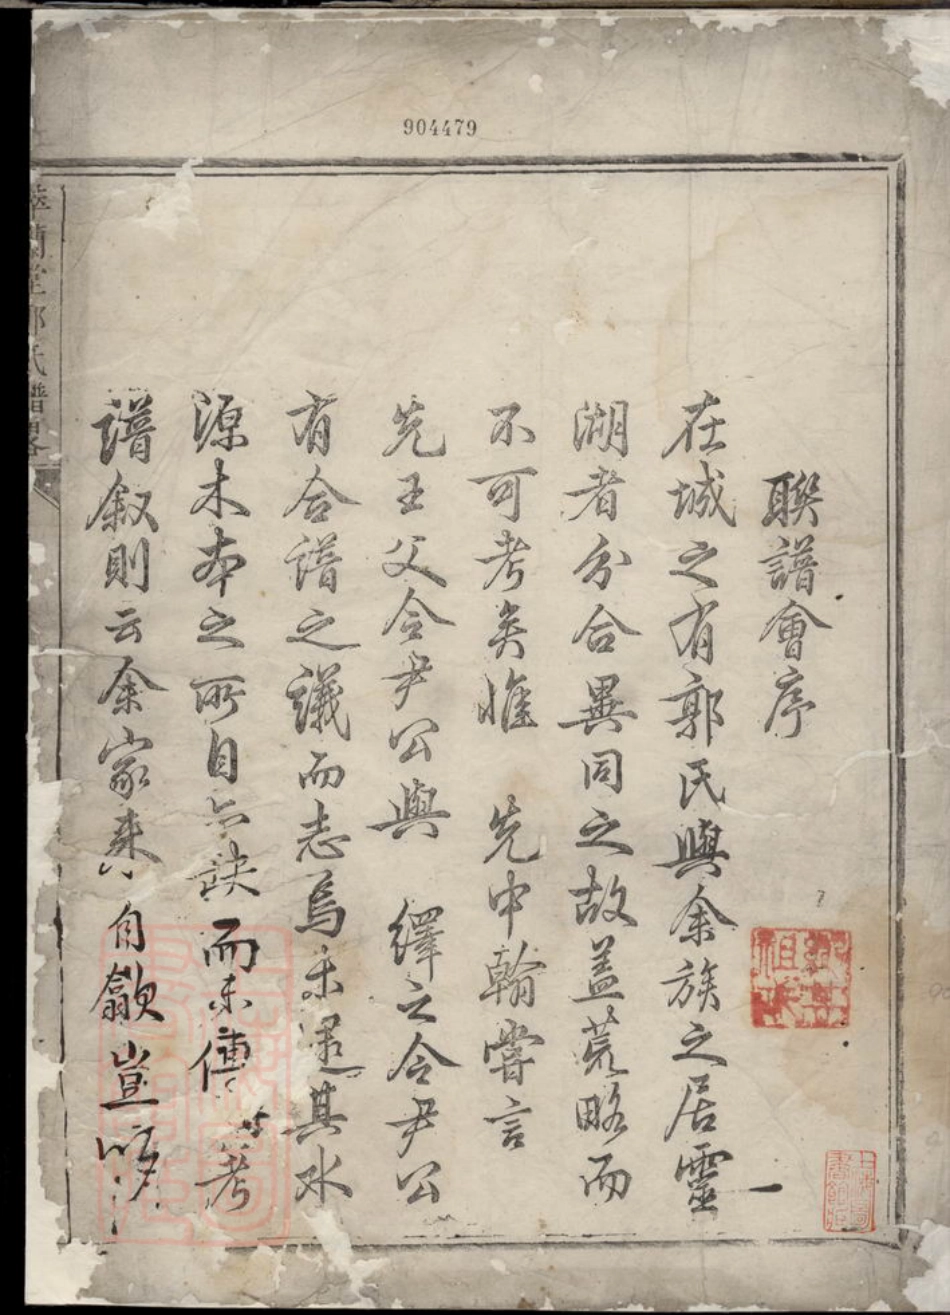 904479
聯譜會序
在城之有郭氏與余族之居靈
湖者分合異同之故蓋荒略而
不可考矣惟 先中翰嘗言
先王父令尹公與 繹之令尹公
有合譜之議而志焉未逮其水
源木本之所自亦缺而未傳 考
譜叙則云余家來自歙豈
堂郭氏譜畧